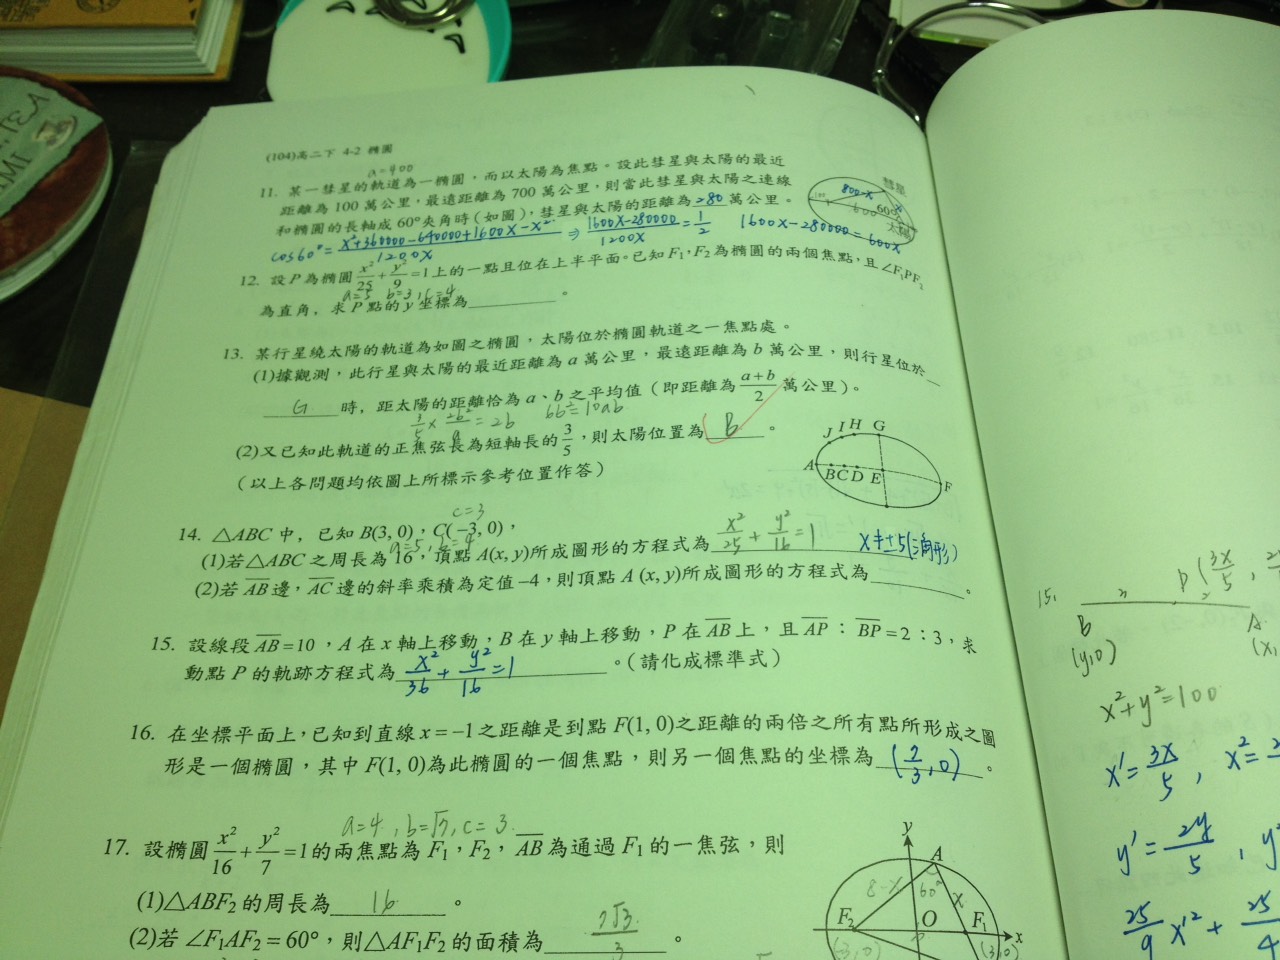 (104)高二下 4-2 橢圓
a=400
11. 某一彗星的軌道為一橢圓，而以太陽為焦點。設此彗星與太陽的最近
距離為 100 萬公里，最遠距離為 700 萬公里，則當此彗星與太陽之連線
和橢圓的長軸成 60°夾角時（如圖），彗星與太陽的距離為 280 萬公里。
cos60°= (x²+360000-640000+1600x-x²)/1200x ⇒ (1600x-280000)/1200x = 1/2 1600x-280000=600x
彗星
800-x
x
600
60°
太陽
12. 設 P 為橢圓 x²/25 + y²/9 =1 上的一點且位在上半平面。已知 F₁，F₂ 為橢圓的兩個焦點，且∠F₁PF₂
a=5 b=3, c=4
為直角，求 P 點的 y 坐標為________。
13. 某行星繞太陽的軌道為如圖之橢圓，太陽位於橢圓軌道之一焦點處。
(1)據觀測，此行星與太陽的最近距離為 a 萬公里，最遠距離為 b 萬公里，則行星位於
G 時，距太陽的距離恰為 a、b 之平均值（即距離為 (a+b)/2 萬公里）。
3/5 × 2b²/a = 2b 6b²=10ab
(2)又已知此軌道的正焦弦長為短軸長的 3/5，則太陽位置為 B 。
（以上各問題均依圖上所標示參考位置作答）
J I H G
A B C D E F
c=3
14. △ABC 中，已知 B(3, 0)，C(−3, 0)，
a=5, b=4
(1)若△ABC 之周長為 16，頂點 A(x, y)所成圖形的方程式為 x²/25 + y²/16 =1 x≠±5(三角形)
(2)若 AB 邊，AC 邊的斜率乘積為定值−4，則頂點 A (x, y)所成圖形的方程式為________。
15. 設線段 AB=10，A 在 x 軸上移動，B 在 y 軸上移動，P 在 AB 上，且 AP：BP=2：3，求
動點 P 的軌跡方程式為 x²/36 + y²/16 =1 。（請化成標準式）
16. 在坐標平面上，已知到直線 x=−1 之距離是到點 F(1, 0)之距離的兩倍之所有點所形成之圖
形是一個橢圓，其中 F(1, 0)為此橢圓的一個焦點，則另一個焦點的坐標為 (7/3, 0) 。
a=4, b=√7, c=3.
17. 設橢圓 x²/16 + y²/7 =1 的兩焦點為 F₁，F₂，AB 為通過 F₁ 的一焦弦，則
(1)△ABF₂ 的周長為 16 。
(2)若 ∠F₁AF₂=60°，則△AF₁F₂ 的面積為 7√3/3 。
y
A
8-x
60°
x
F₂
O
F₁
x
(-3,0)
(3,0)
15.
P(3x/5,
B
A
(y,0)
(x,
x²+y²=100
x'= 3x/5 , x²=
y'= 2y/5 ,
25/9 x'² + 25/4